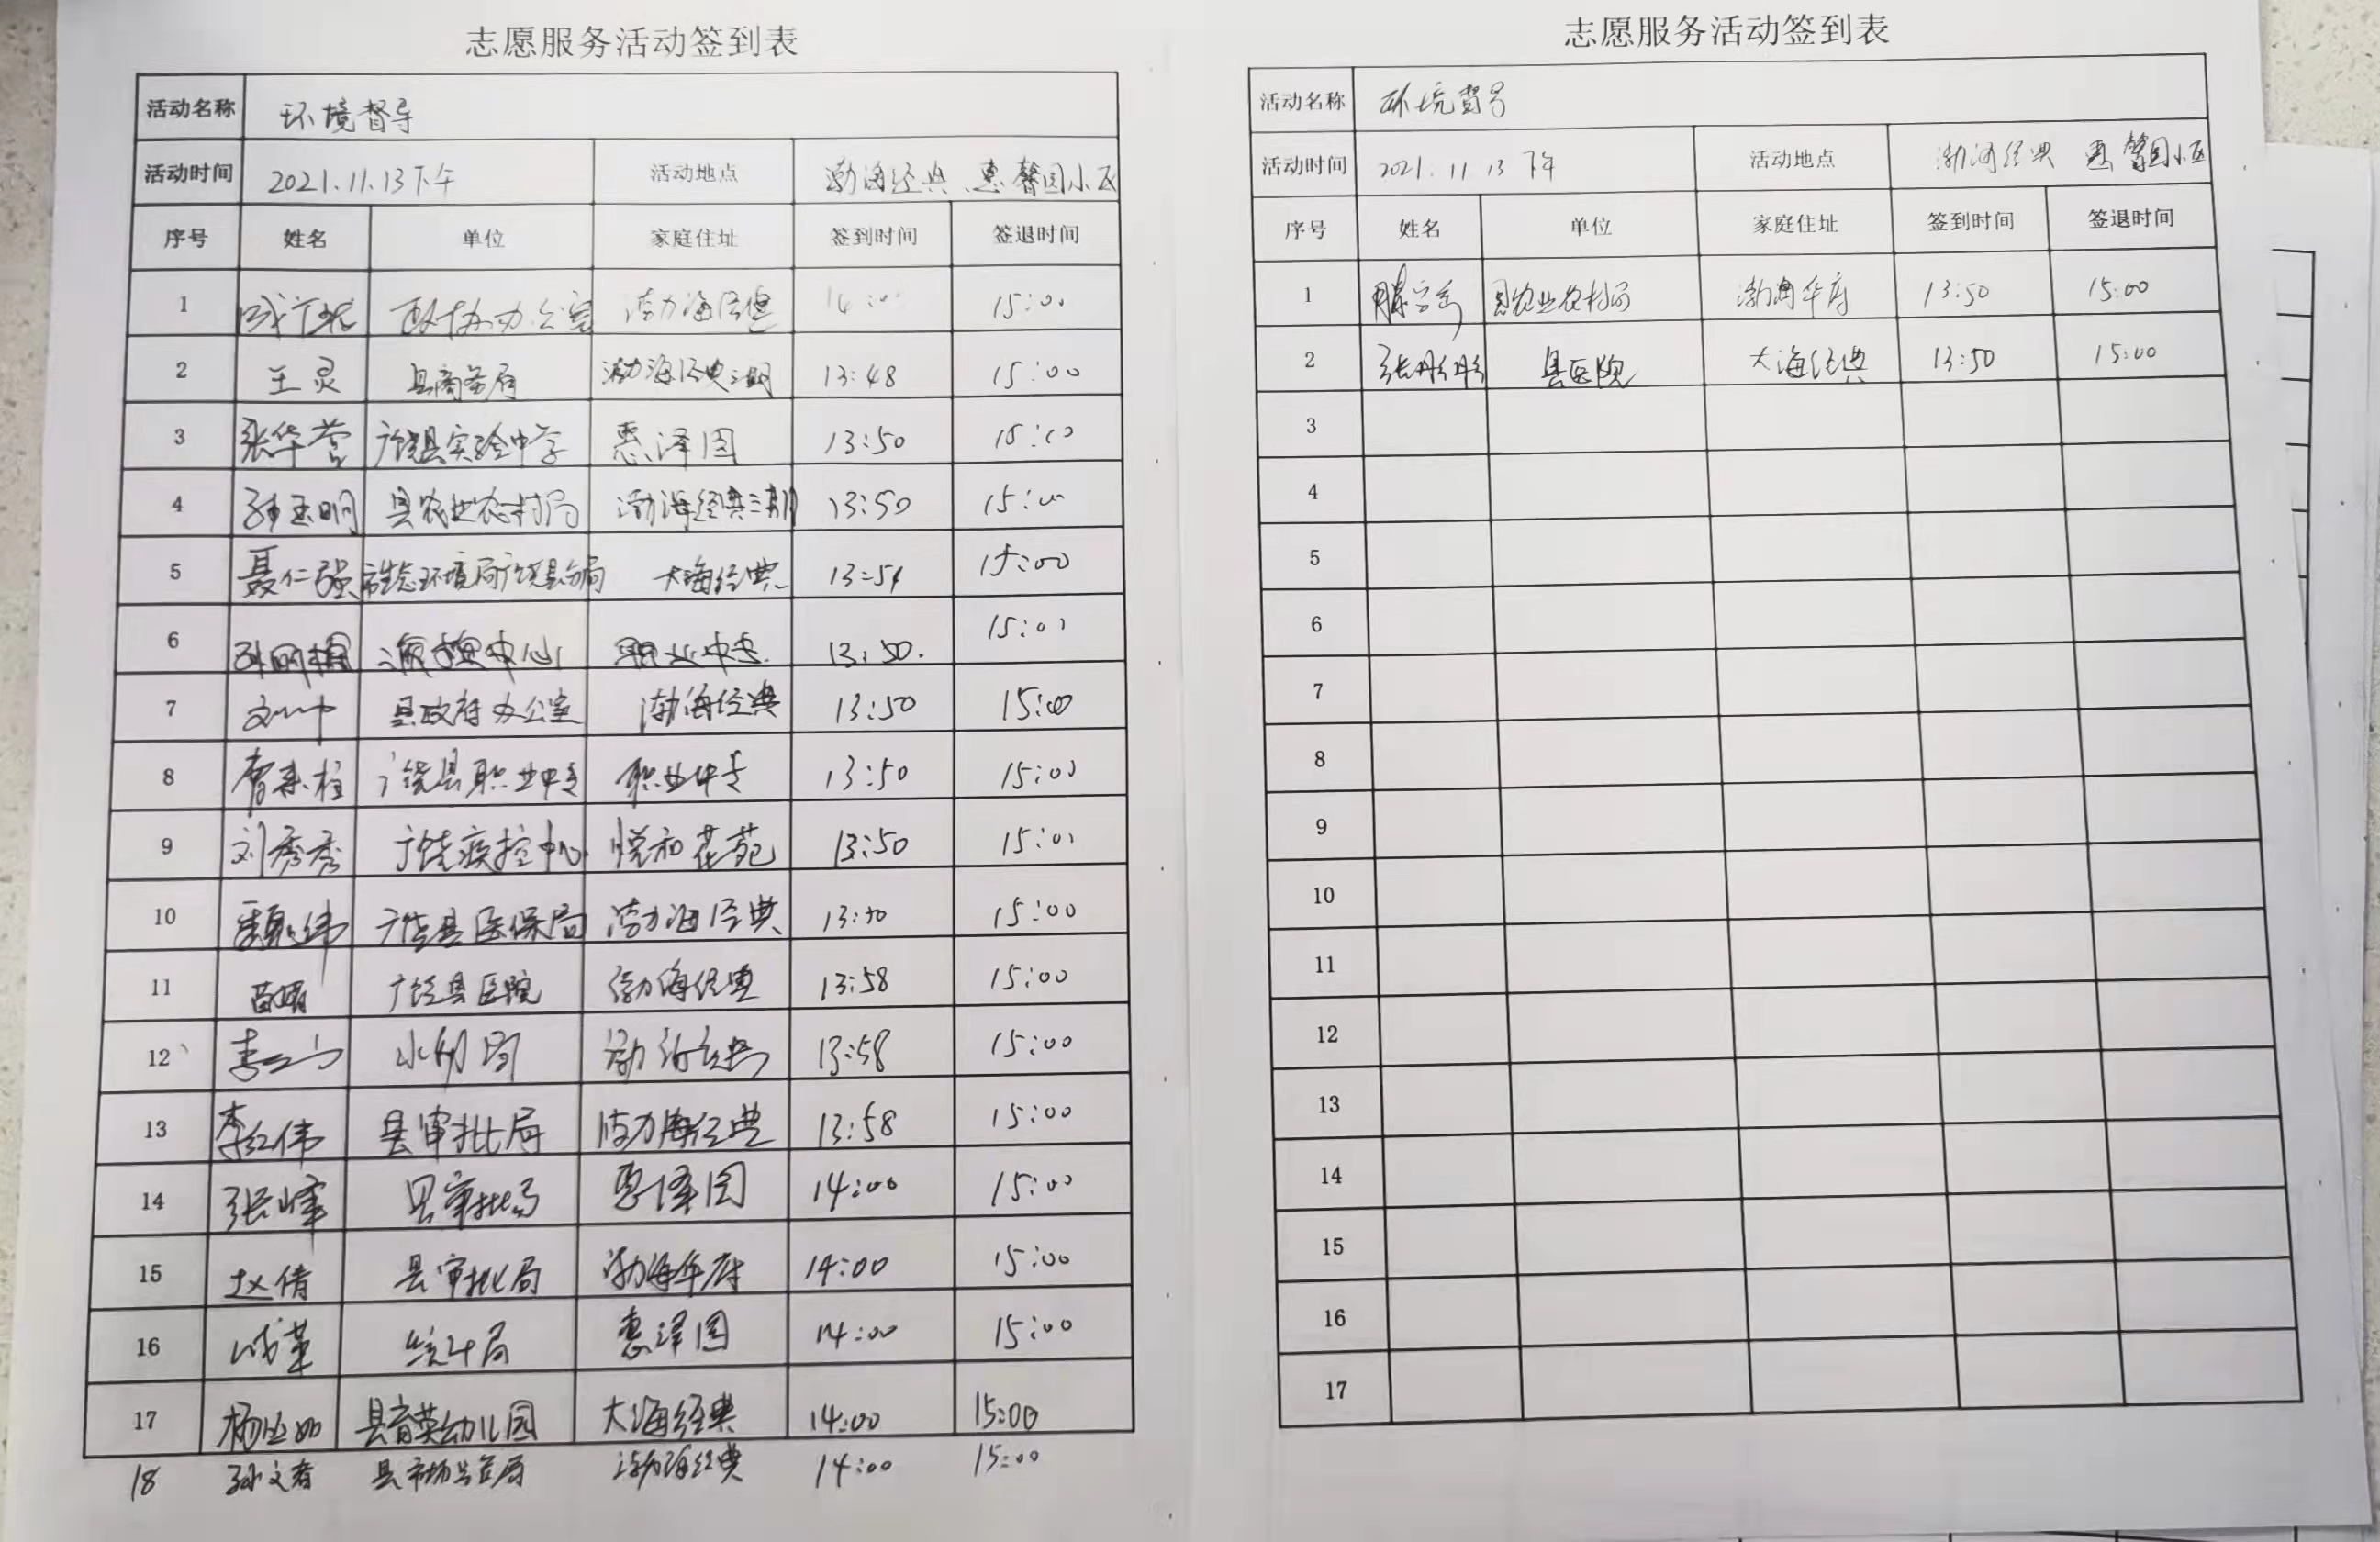 志愿服务活动签到表
活动名称 环境督导
活动时间 2021.11.13下午 活动地点 渤海经典、惠馨园小区
序号 姓名 单位 家庭住址 签到时间 签退时间
1 政协办公室 渤海经典 14:00 15:00
2 王灵 县商务局 渤海经典三期 13:48 15:00
3 张华营 广饶县实验中学 惠泽园 13:50 15:00
4 孙玉明 县农业农村局 渤海经典三期 13:50 15:00
5 聂仁强 市生态环境局广饶县分局 大海经典 13:54 15:00
6 中心 职业中专 13:50. 15:00
7 县政府办公室 渤海经典 13:50 15:00
8 广饶县职业中专 职业中专 13:50 15:00
9 刘秀秀 广饶疾控中心 悦和花苑 13:50 15:00
10 魏伟 广饶县医保局 渤海经典 13:50 15:00
11 苗娟 广饶县医院 渤海经典 13:58 15:00
12 李 水利局 渤海经典 13:58 15:00
13 李红伟 县审批局 渤海经典 13:58 15:00
14 张峰 县审批局 惠泽园 14:00 15:00
15 赵倩 县审批局 渤海华府 14:00 15:00
16 统计局 惠泽园 14:00 15:00
17 杨 县育英幼儿园 大海经典 14:00 15:00
18 孙文春 县市场监管局 渤海经典 14:00 15:00
志愿服务活动签到表
活动名称 环境督导
活动时间 2021.11.13下午 活动地点 渤海经典 惠馨园小区
序号 姓名 单位 家庭住址 签到时间 签退时间
1 县农业农村局 渤海华府 13:50 15:00
2 张彤彤 县医院 大海经典 13:50 15:00
3
4
5
6
7
8
9
10
11
12
13
14
15
16
17